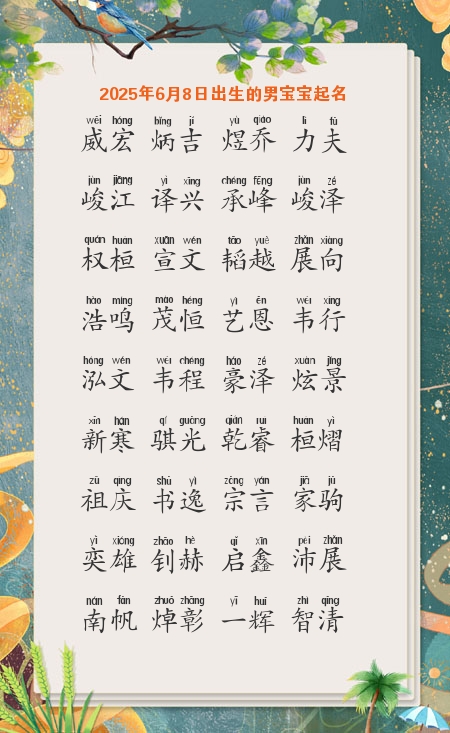 2025年6月8日出生的男宝宝起名
wēi hóng bǐng jí yù qiáo lì fū
威宏 炳吉 煜乔 力夫
jùn jiāng yì xīng chéng fēng jùn zé
峻江 译兴 承峰 峻泽
quán huán xuān wén tāo yuè zhǎn xiàng
权桓 宣文 韬越 展向
hào míng mào héng yì ēn wéi xíng
浩鸣 茂恒 艺恩 韦行
hóng wén wéi chéng háo zé xuàn jǐng
泓文 韦程 豪泽 炫景
xīn hán qí guāng qián ruì huán yì
新寒 骐光 乾睿 桓熠
zǔ qìng shū yì zōng yán jiā jū
祖庆 书逸 宗言 家驹
yì xióng zhāo hè qǐ xīn pèi zhǎn
奕雄 钊赫 启鑫 沛展
nán fān zhuō zhāng yī huī zhì qīng
南帆 焯彰 一辉 智清